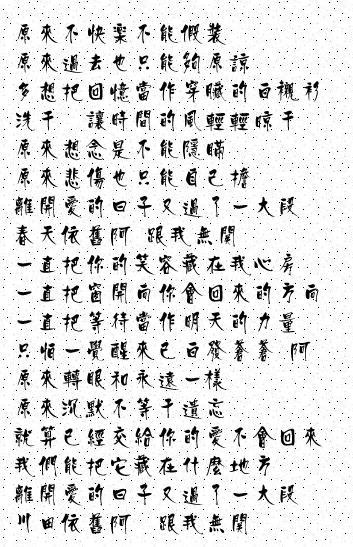 原來不快樂不能假裝
原來過去也只能夠原諒
多想把回憶當作穿髒的白襯衫
洗干　讓時間的風輕輕晾干
原來想念是不能隱瞞
原來悲傷也只能自己擔
離開愛的日子又過了一大段
春天依舊阿 跟我無關
一直把你的笑容藏在我心房
一直把窗開向你會回來的方向
一直把等待當作明天的力量
只怕一覺醒來已白發蒼蒼 阿
原來轉眼和永遠一樣
原來沉默不等于遺忘
就算已經交給你的愛不會回來
我們能把它藏在什麼地方
離開愛的日子又過了一大段
川田依舊阿　跟我無關